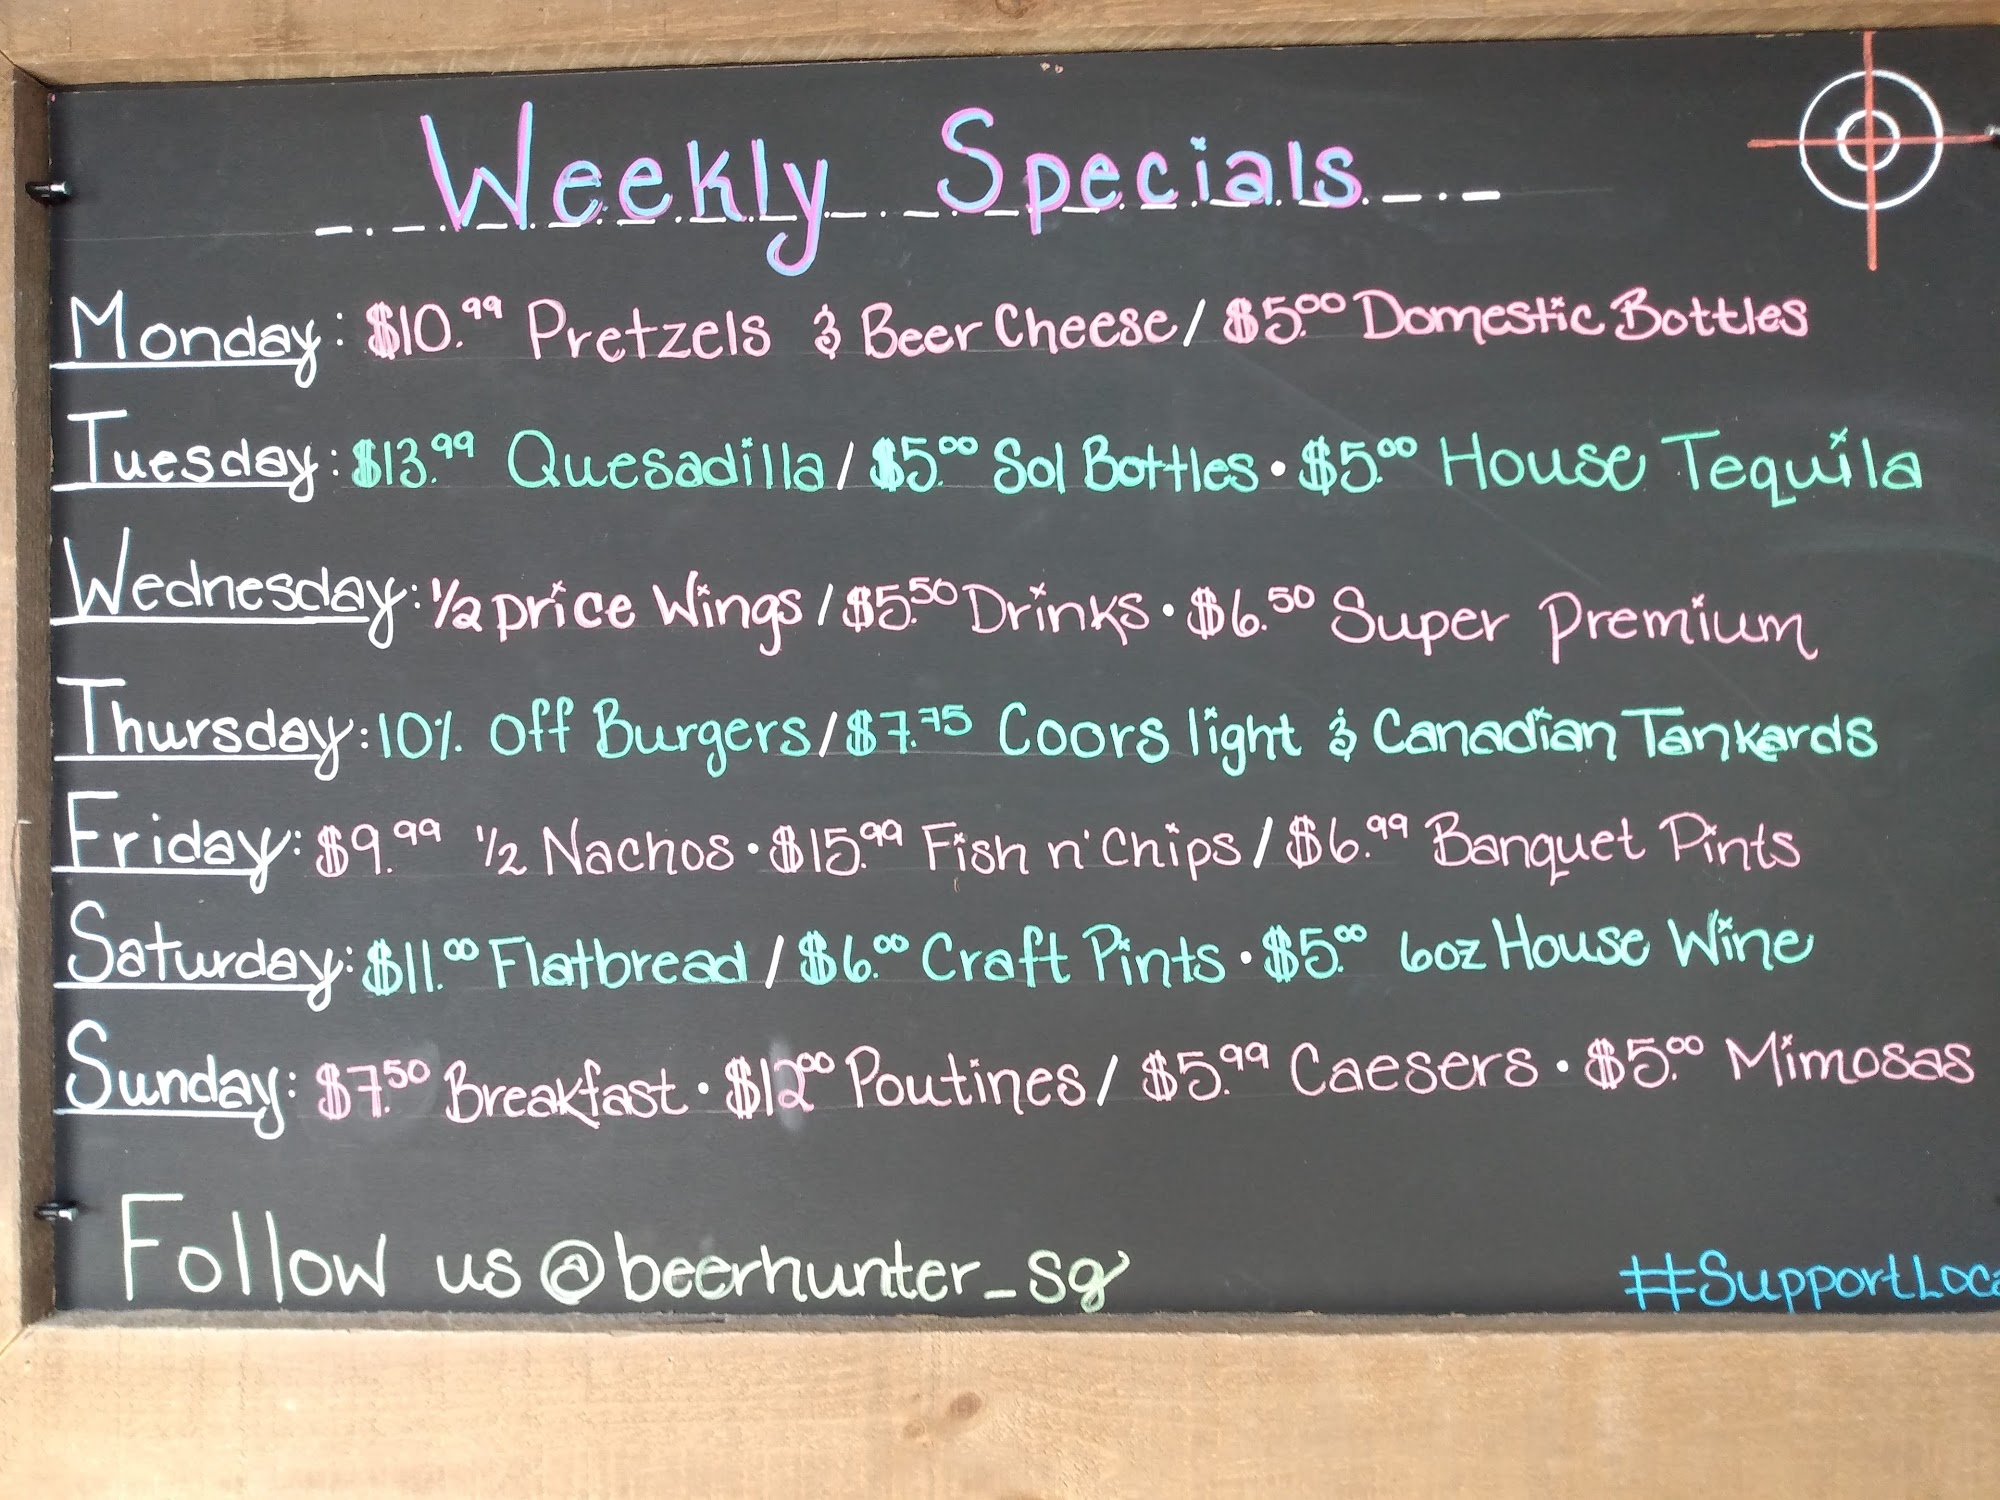 Weekly Specials
Monday: $10.99 Pretzels & Beer Cheese / $5.00 Domestic Bottles
Tuesday: $13.99 Quesadilla / $5.00 Sol Bottles • $5.00 House Tequila
Wednesday: 1/2 price Wings / $5.50 Drinks • $6.50 Super Premium
Thursday: 10% Off Burgers / $7.75 Coors light & Canadian Tankards
Friday: $9.99 1/2 Nachos • $15.99 Fish n' Chips / $6.99 Banquet Pints
Saturday: $11.00 Flatbread / $6.00 Craft Pints • $5.00 6oz House Wine
Sunday: $7.50 Breakfast • $12.00 Poutines / $5.99 Caesers • $5.00 Mimosas
Follow us @beerhunter_sg
#SupportLoca